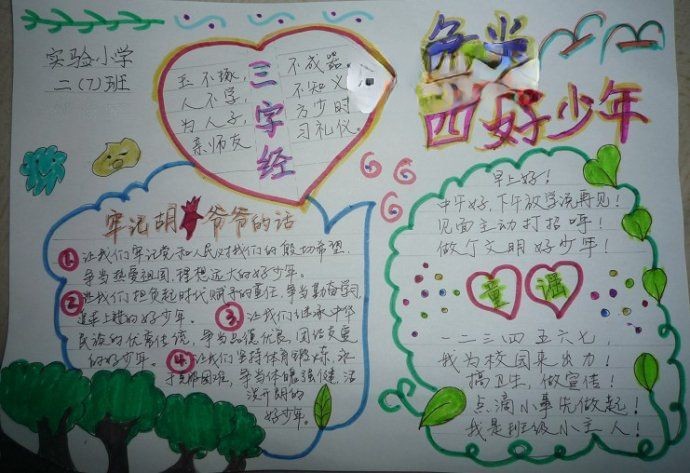 实验小学
二(7)班
三字经
玉不琢,不成器。
人不学,不知义
为人子,方少时
亲师友 习礼仪。
争当
四好少年
牢记胡爷爷的话
1 让我们牢记党和人民对我们的殷切希望,
争当热爱祖国,理想远大的好少年。
2 让我们担负起时代赋予的重任,争当勤奋学习
追求上进的好少年。 3 让我们继承中华
民族的优良传统,争当品德优良、团结友爱
的好少年。 4 让我们坚持体育锻炼,
争当体魄强健、活
泼开朗的
好少年。
早上好!
中午好,下午放学说再见!
见面主动打招呼!
做个文明好少年!
童谣
一二三四五六七,
我为校园来出力!
搞卫生,做宣传!
点滴小事先做起!
我是班级小主人!